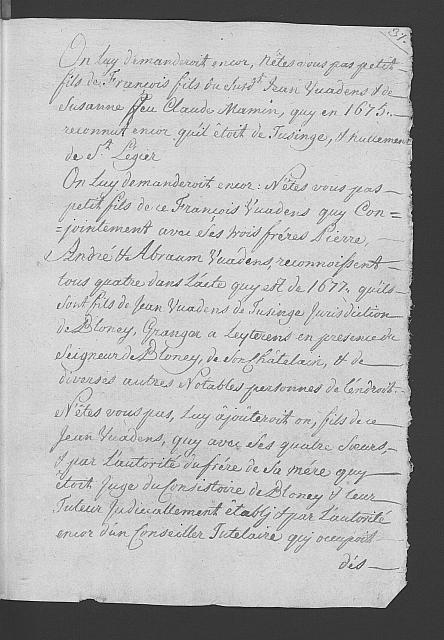 37.
On Luy demanderoit encor, Nêtes vous pas petit
fils de François fils du Susd.t Jean Vuadens & de
Susanne ffeu Claude Mamin, quy en 1675.
reconnut encor qu'il étoit de Tusinge, & nullement
de S.t Légier
On Luy demanderoit encor: N'êtes vous pas
petit fils de ce François Vuadens quy Con=
=jointement avec ses trois fréres Pierre,
André & Abraam Vuadens, reconnoissent
tous quatre dans L'acte quy est de 1677. qu'ils
sont fils de Jean Vuadens de Tusinge Jurisdiction
de Bloney, Granger a Leyterens en presence du
Seigneur de Bloney, de son Châtelain, & de
diverses autres Notables personnes de L'endroit.
N'êtes vous pas, Luy âjoûteroit on, fils de ce
Jean Vuadens, quy avec ses quatre Sœurs,
& par L'autorité du frére de Sa mére quy
étoit Juge du Consistoire de Bloney & leur
Tuteur Judiciallement établj & par L'autorité
encor d'un Conseiller Tutelaire quy occupoit
dés